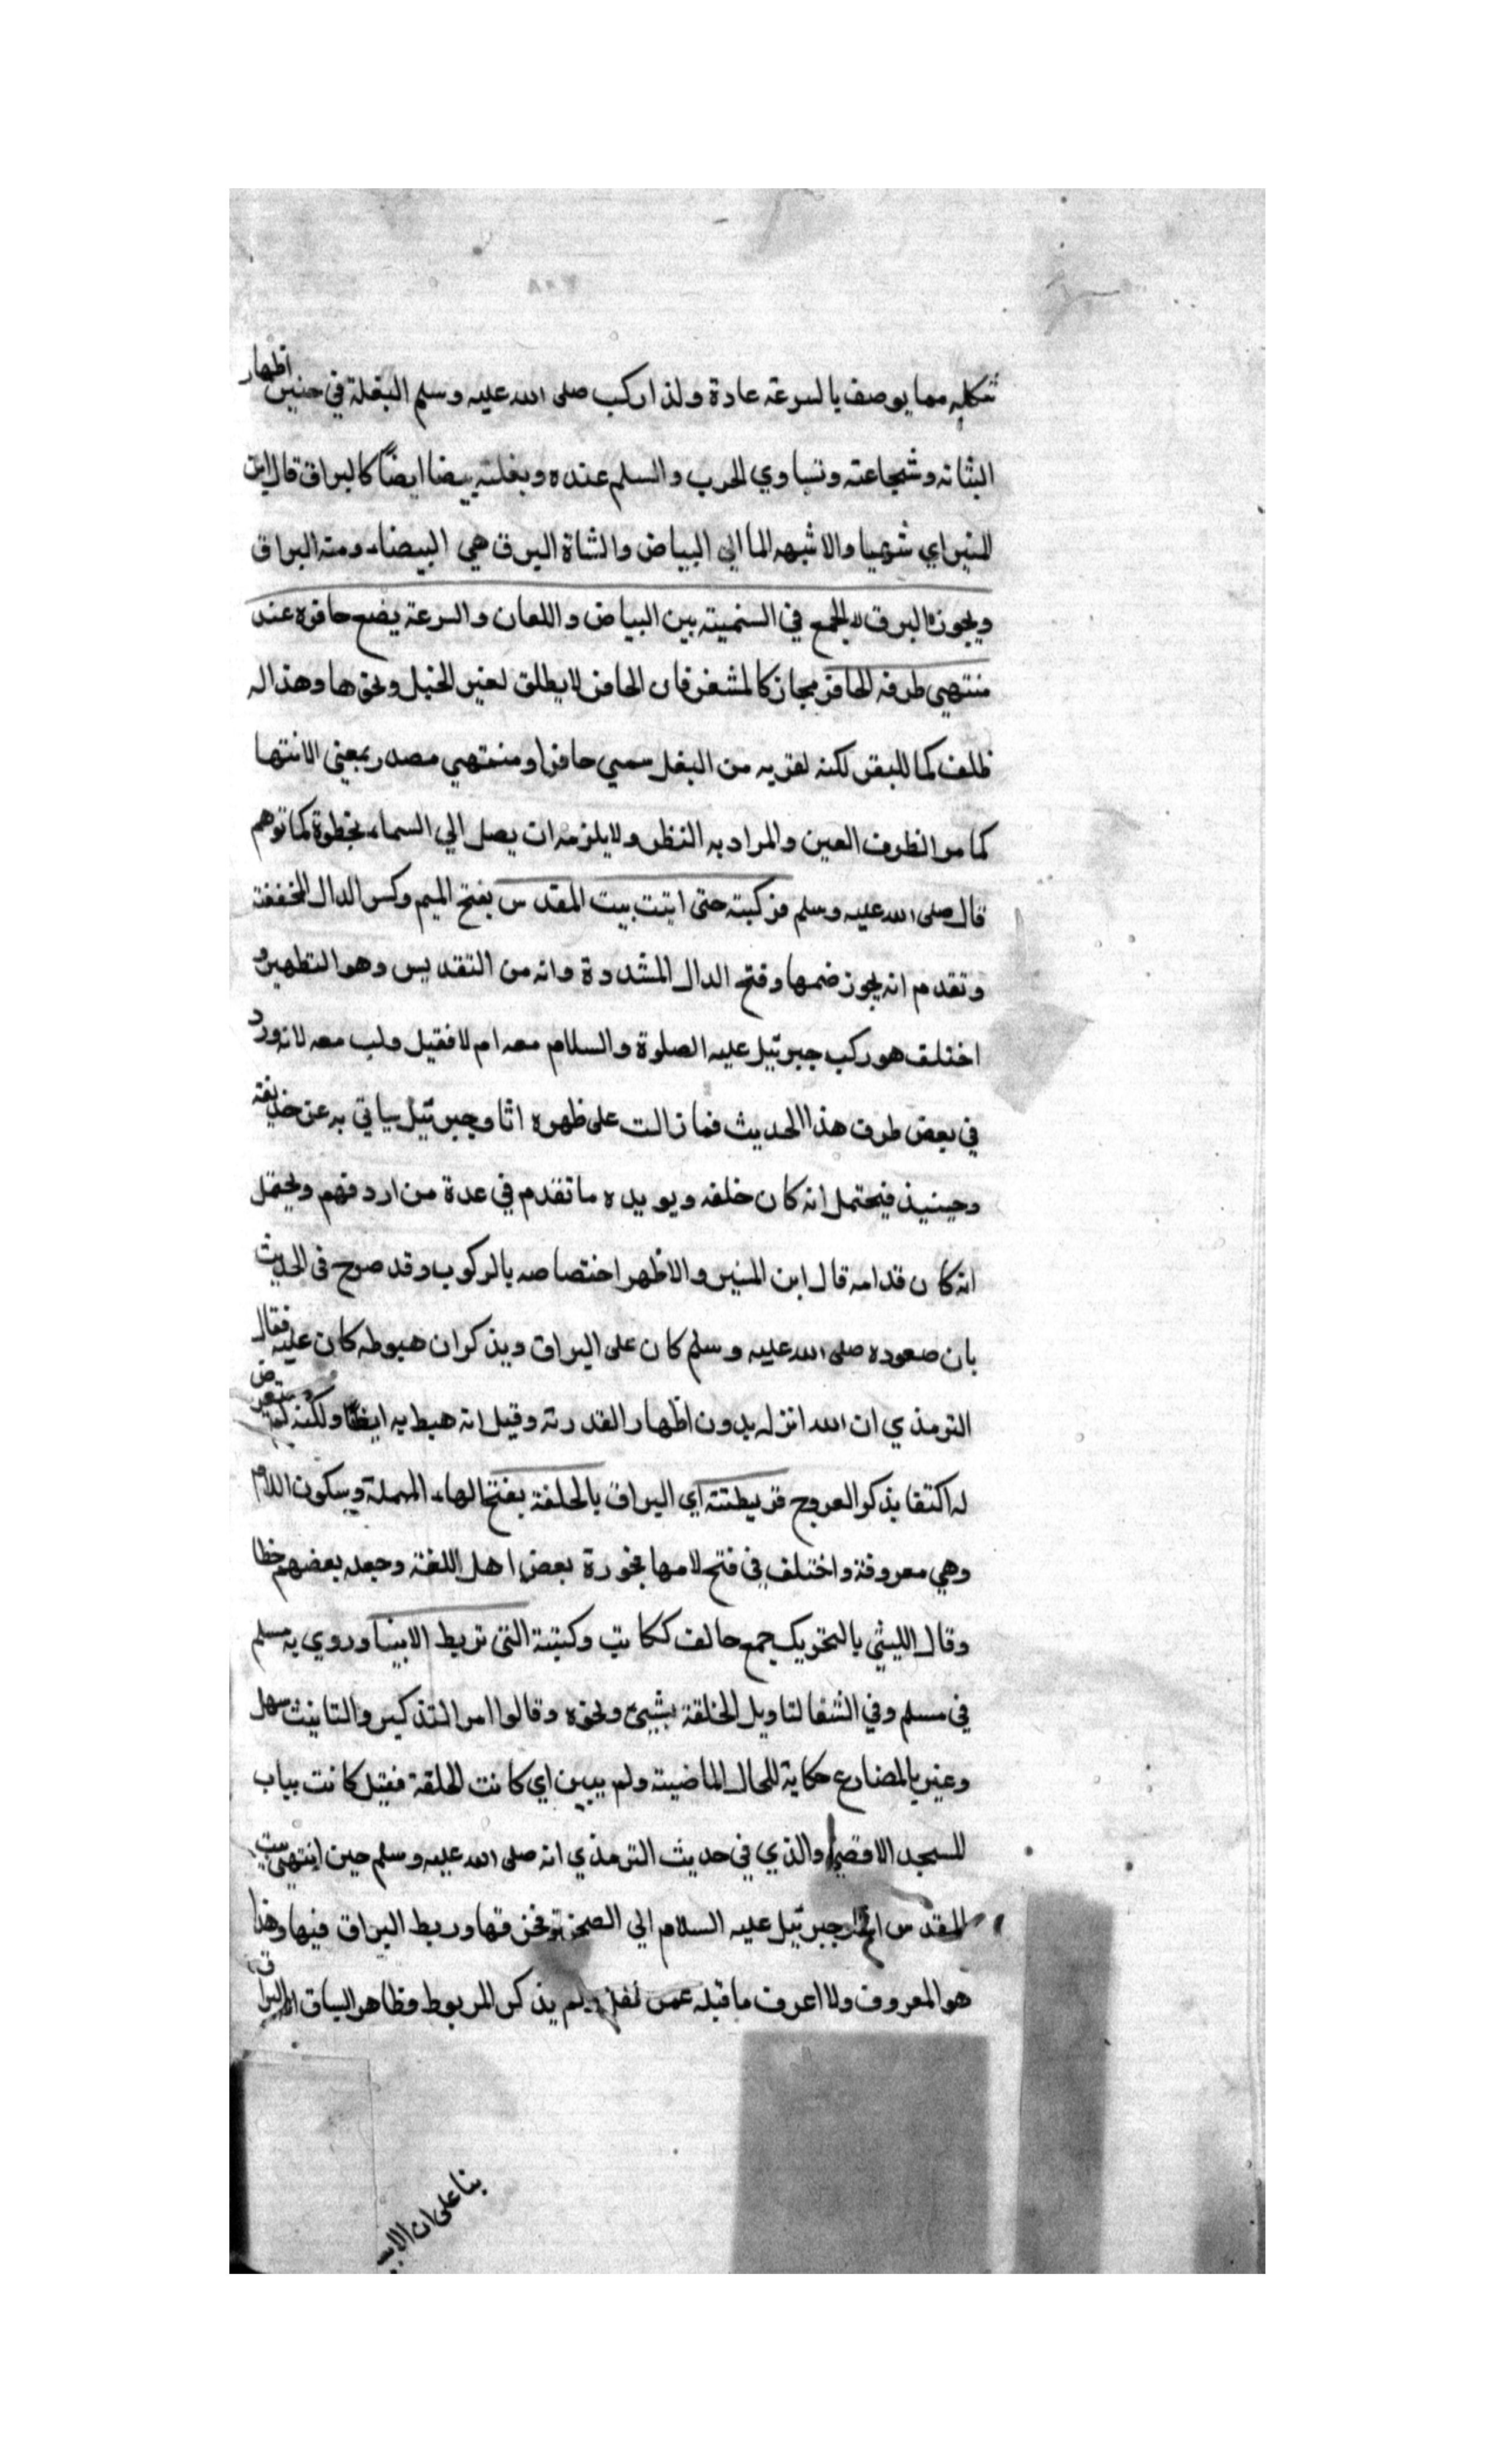 شكله مما يوصف بالسرعة عادة ولذا ركب صلى الله عليه وسلم البغلة في حنين اظهار
لثباته وشجاعته وتساوي الحرب والسلم عنده وبغلته بيضا ايضًا كالبراق قال ابن
المنير اي شهبا والاشبه الما الي البياض والشاة البرقا هي البيضاء ومنه البراق
ويجوز البرق لا الجمع في التسمية بين البياض واللمعان والسرعة يضع حافره عند
منتهي طرفه الحافر مجاز كالمشفر فان الحافر لا يطلق لغير الخيل ونحوها وهذا له
ظلف كما للبقر لكنه لقربه من البغل سمي حافرا ومنتهي مصدر بمعني الانتها
كما مر الطرف العين والمراد به النظر ولا يلزمه ان يصل الي السماء بخطوة كما توهم
قال صلى الله عليه وسلم فركبته حتى اتيت بيت المقدس بفتح الميم وكسر الدال المخففة
وتقدم انه يجوز ضمها وفتح الدال المشددة وانه من التقديس وهو التطهير و
اختلف هو ركب جبرئيل عليه الصلوة والسلام معه ام لا فقيل ولب معه لانه ورد
في بعض طرق هذا الحديث فما زالت على ظهره انا وجبرئيل يياتي به عن حذيفة
وحينيذ فيحتمل انه كان خلفه ويويده ما تقدم في عدة من اردفهم ويحتمل
انه كان قدامه قال ابن المنير والاظهر اختصاصه بالركوب وقد صرح في الحديث
بان صعوده صلى الله عليه وسلم كان على البراق ويذكر ان هبوطه كان عليه فقال
الترمذي ان الله انزله بدون اظهار القدرته وقيل انه هبط به ايضًا ولكنه لم يتعرض
له اكتفا بذكر العروج فربطته اي البراق بالحلقة بفتح الهاء المهملة وسكون اللام
وهي معروفة واختلف في فتح لامها فجوزه بعض اهل اللغة وجعله بعضهم خطا
وقال الليثي بالتحريك جمع حالف ككاتب وكتبة التي تربط الانبيا وروي به مسلم
في مسلم وفي الشفا لتاويل الحلقة بشيئ ونحوه وقالوا امر التذكير والتانيث سهل
وعبر بالمضارع حكاية للحال الماضية ولم يبين اي كانت الحلقة فقيل كانت بباب
المسجد الاقصي والذي في حديث الترمذي انه صلى الله عليه وسلم حين انتهي بيت
المقدس جبرئيل عليه السلام الي الصخرة فخرقها وربط البراق فيها وهذا
هو المعروف ولا اعرف ما قبله عمن نقل ولم يذكر المربوط وظاهر السياق انه البراق
بنا على ان الانبيـ